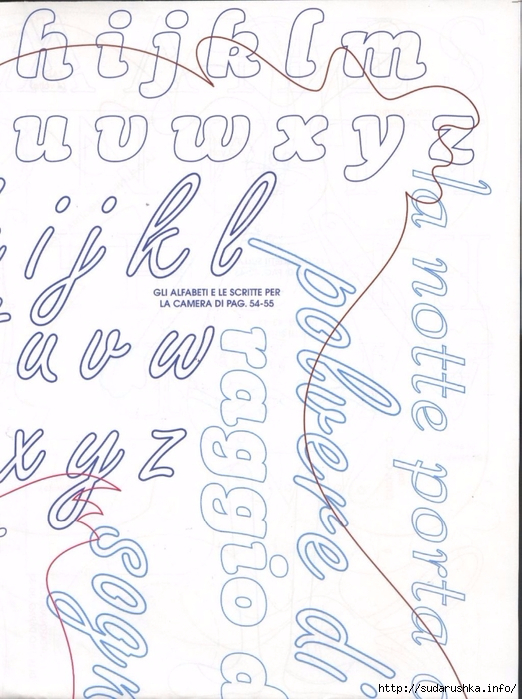 h i j k l m
u v w x y z
i j k l
GLI ALFABETI E LE SCRITTE PER
LA CAMERA DI PAG. 54-55
u v w
x y z
la notte porta
polvere di
raggio d
sogn
http://sudarushka.info/